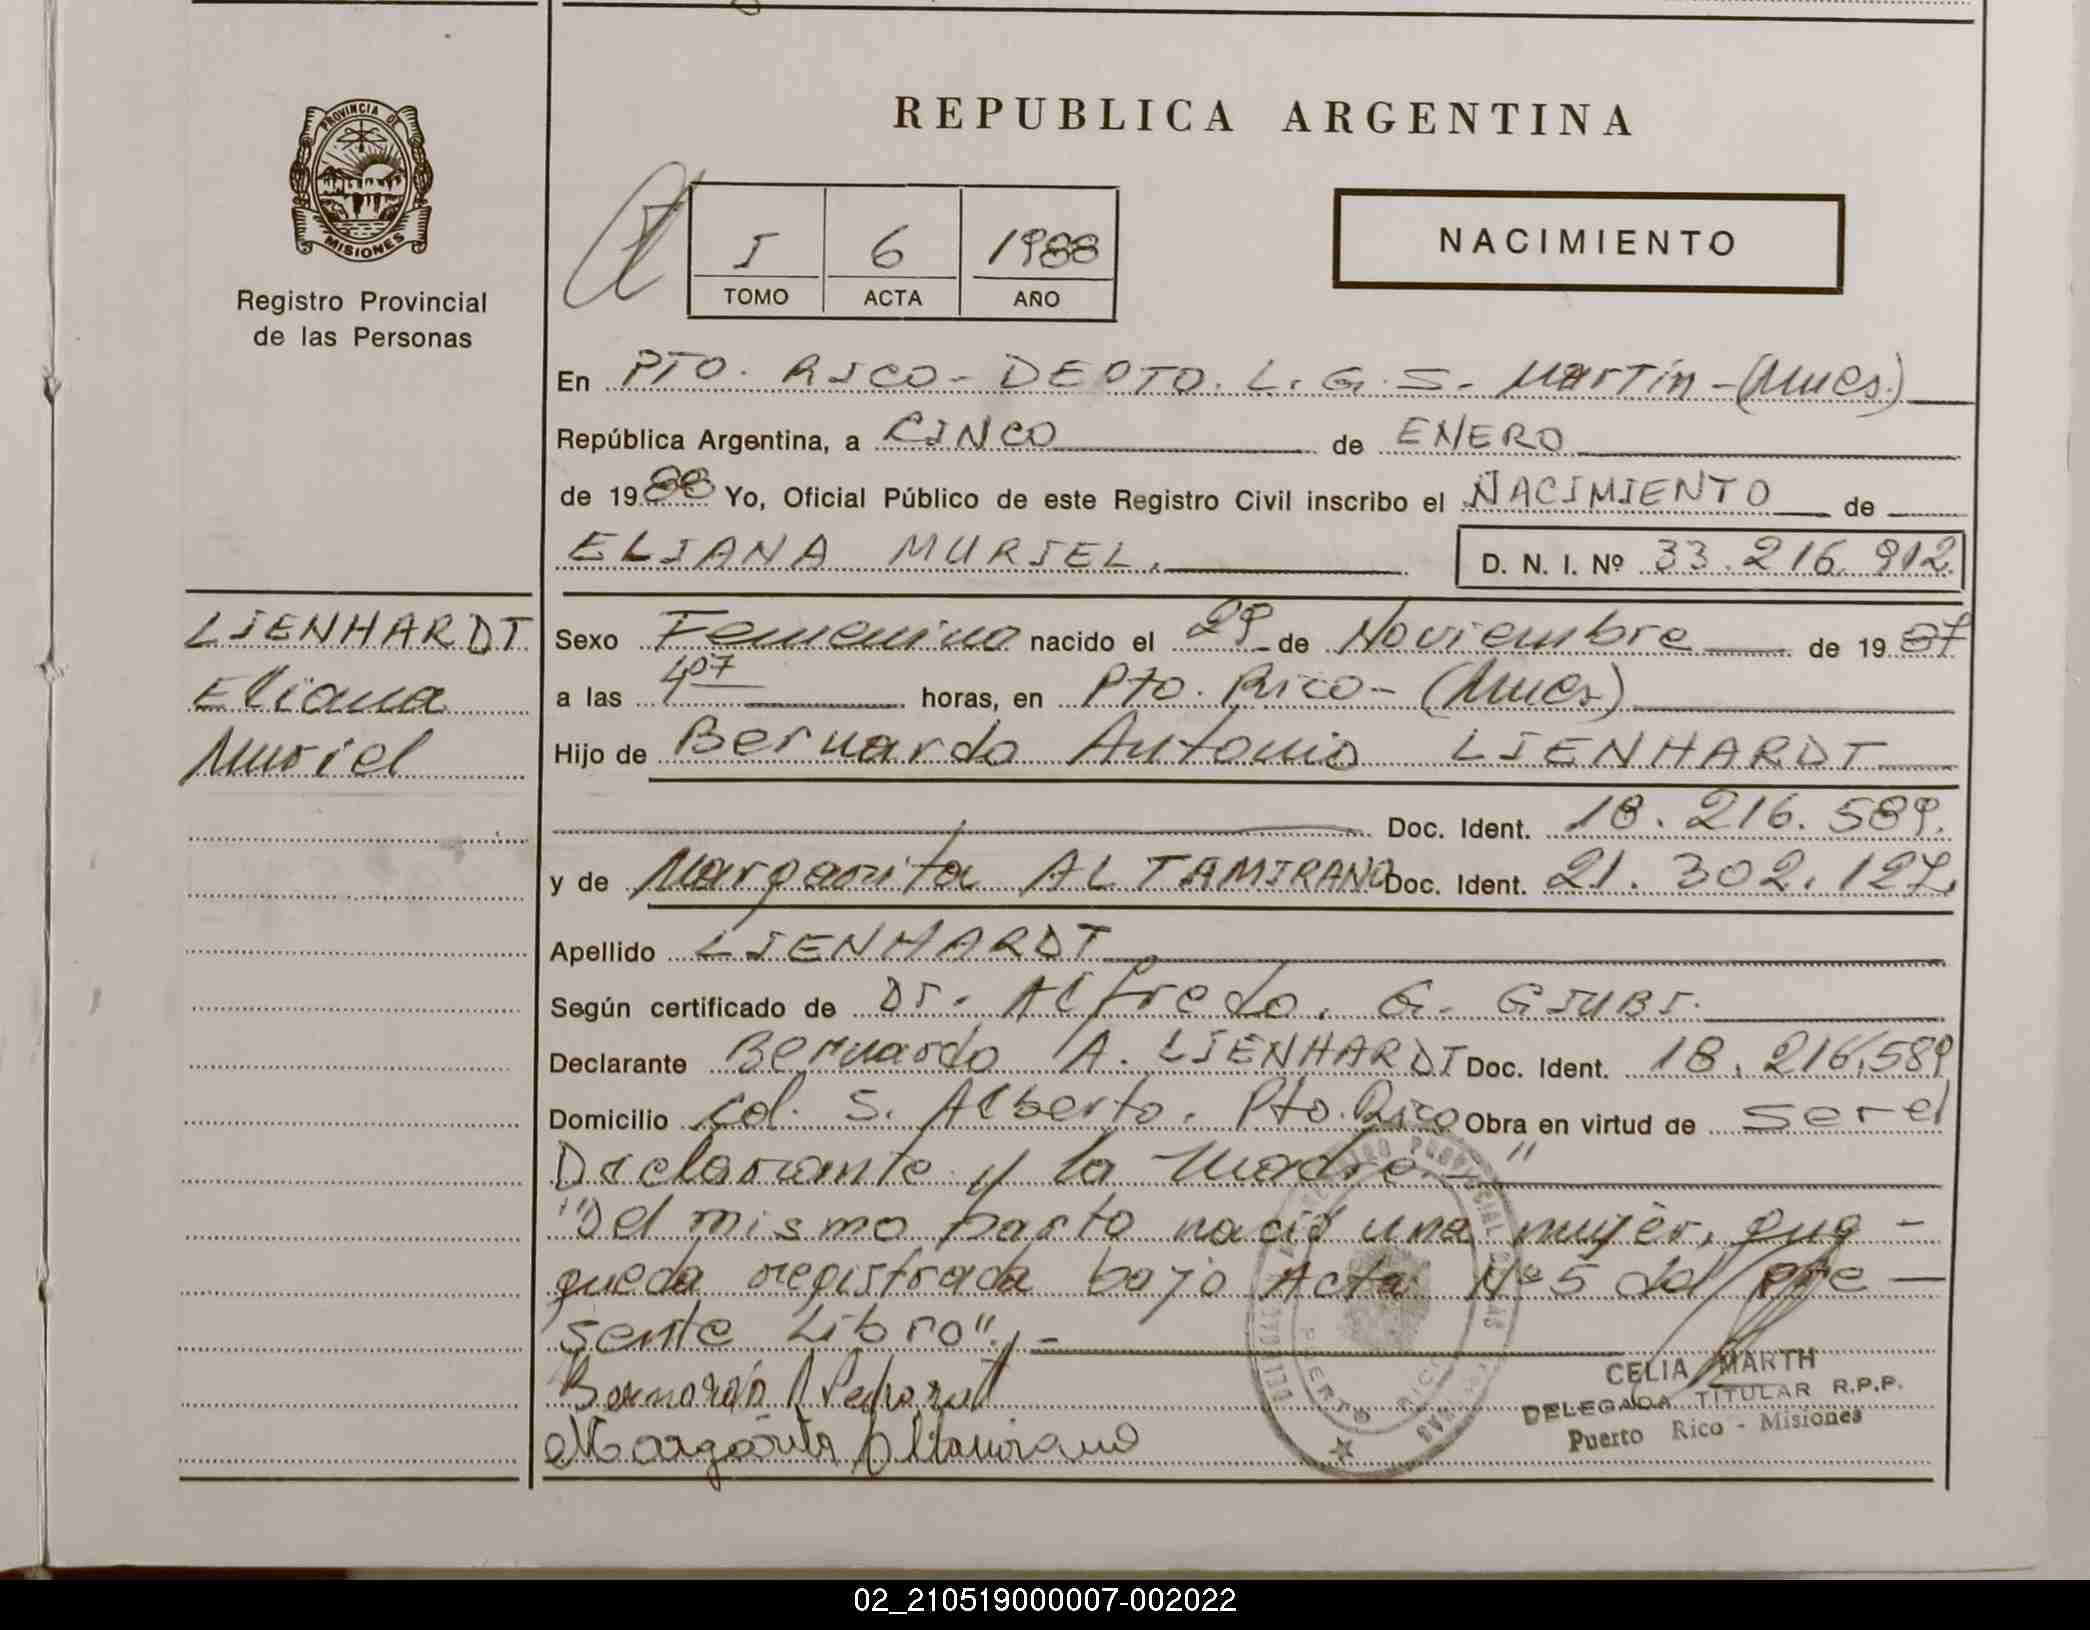 PROVINCIA DE
MISIONES
Registro Provincial
de las Personas
REPUBLICA ARGENTINA
I 6 1988
TOMO ACTA AÑO
NACIMIENTO
En PTO. RICO - DEPTO. L. G. S. Martín - (Mnes.)
República Argentina, a CINCO de ENERO
de 1988 Yo, Oficial Público de este Registro Civil inscribo el NACIMIENTO de
ELIANA MURIEL. D. N. I. Nº 33.216.912
LIENHARDT
Eliana
Muriel
Sexo Femenino nacido el 29 de Noviembre de 1987
a las 4 07 horas, en Pto. Rico - (Mnes)
Hijo de Bernardo Antonio LIENHARDT
Doc. Ident. 18.216.589.
y de Margarita ALTAMIRANO Doc. Ident. 21.302.127.
Apellido LIENHARDT
Según certificado de Dr. Alfredo. G. GIUBI.
Declarante Bernardo A. LIENHARDT Doc. Ident. 18.216.589
Domicilio Col. S. Alberto. Pto. Rico Obra en virtud de ser el
Declarante y la Madre.-"
"Del mismo parto nació una mujer, que -
queda registrada bajo Acta Nº 5 del pre -
sente Libro".-
Margarita Altamirano
CELIA MARTH
DELEGADA TITULAR R.P.P.
Puerto Rico - Misiones
02_210519000007-002022